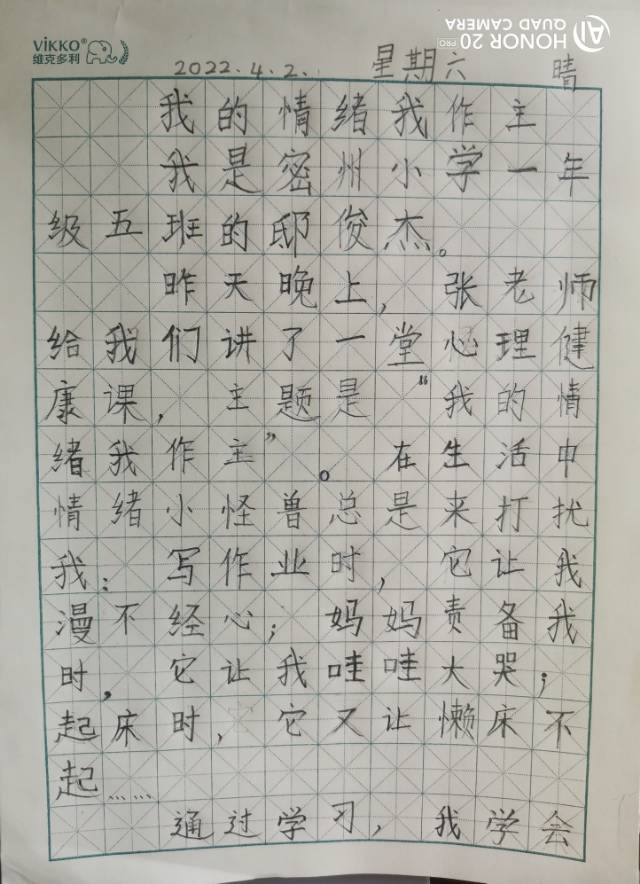 VIKKO
维克多利
HONOR 20 PRO
QUAD CAMERA
AI
2022.4.2. 星期六 晴
我的情绪我作主
我是密州小学一年
级五班的邸俊杰。
昨天晚上，张老师
给我们讲了一堂心理健
康课，主题是“我的情
绪我作主”。在生活中
情绪小怪兽总是来打扰
我：写作业时，它让我
漫不经心；妈妈责备我
时，它让我哇哇大哭；
起床时，它又让懒床不
起……
通过学习，我学会